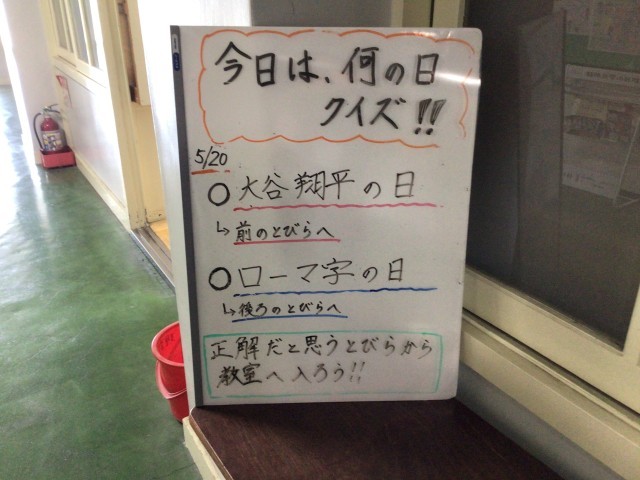 今日は、何の日
クイズ!!
5/20
○大谷翔平の日
↳前のとびらへ
○ローマ字の日
↳後ろのとびらへ
正解だと思うとびらから
教室へ入ろう!!